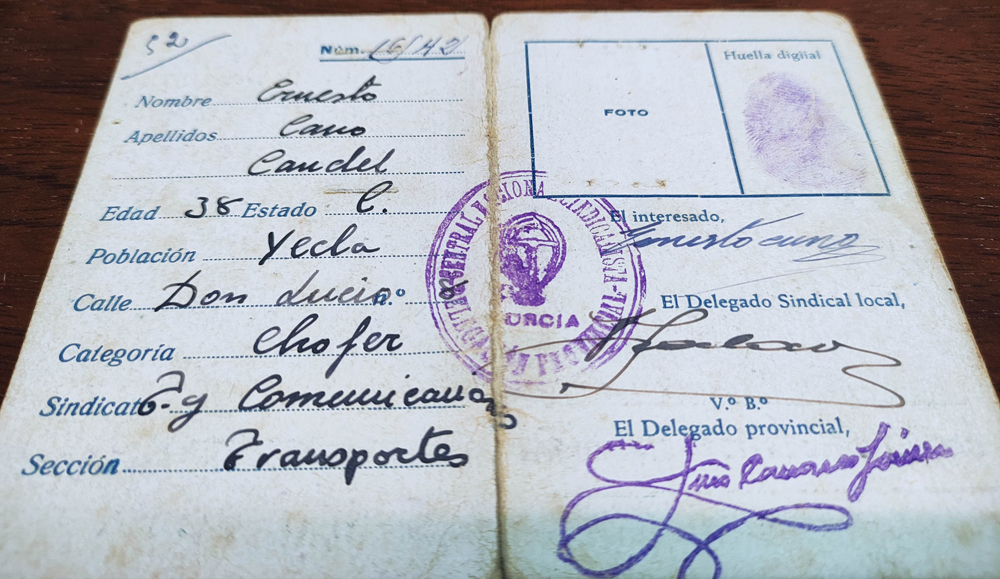 52
Núm. 16/42
Nombre Ernesto
Apellidos Cano
Candel
Edad 38 Estado C.
Población Yecla
Calle Don Lucio n.º
Categoría Chofer
Sindicato T. y Comunicaciones
Sección Transportes
FOTO
Huella digital
El interesado,
Ernesto Cano
El Delegado Sindical local,
V.º B.º
El Delegado provincial,
CENTRAL NACIONAL SINDICALISTA
DELEGACIÓN PROVINCIAL
MURCIA